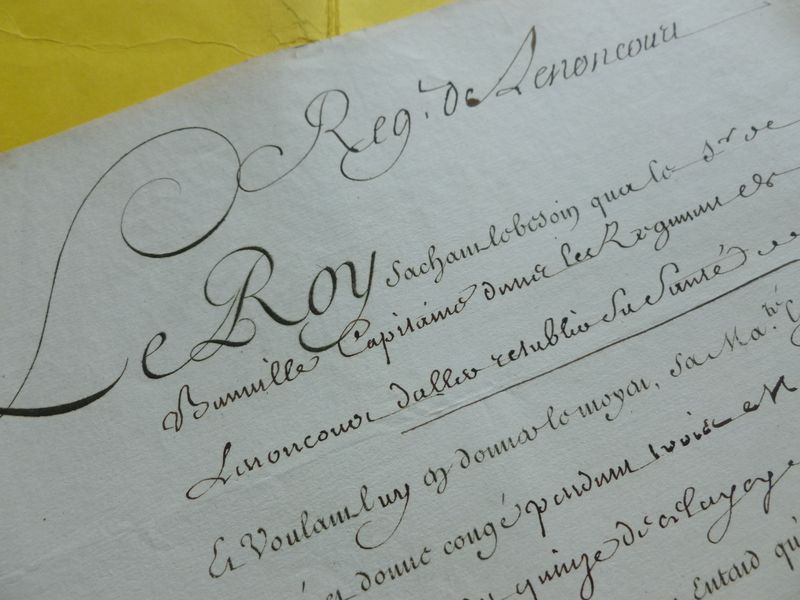 Reg.t De Lenoncourt
Le Roy Sachant le besoin que le S.r de
Bunville Capitaine dans le Regiment de
Lenoncour d'aller restablir Sa Santé
Et Voulant luy en donner le moyen, Sa Ma.té
donné congé pendant trois
quinze
Entend qu